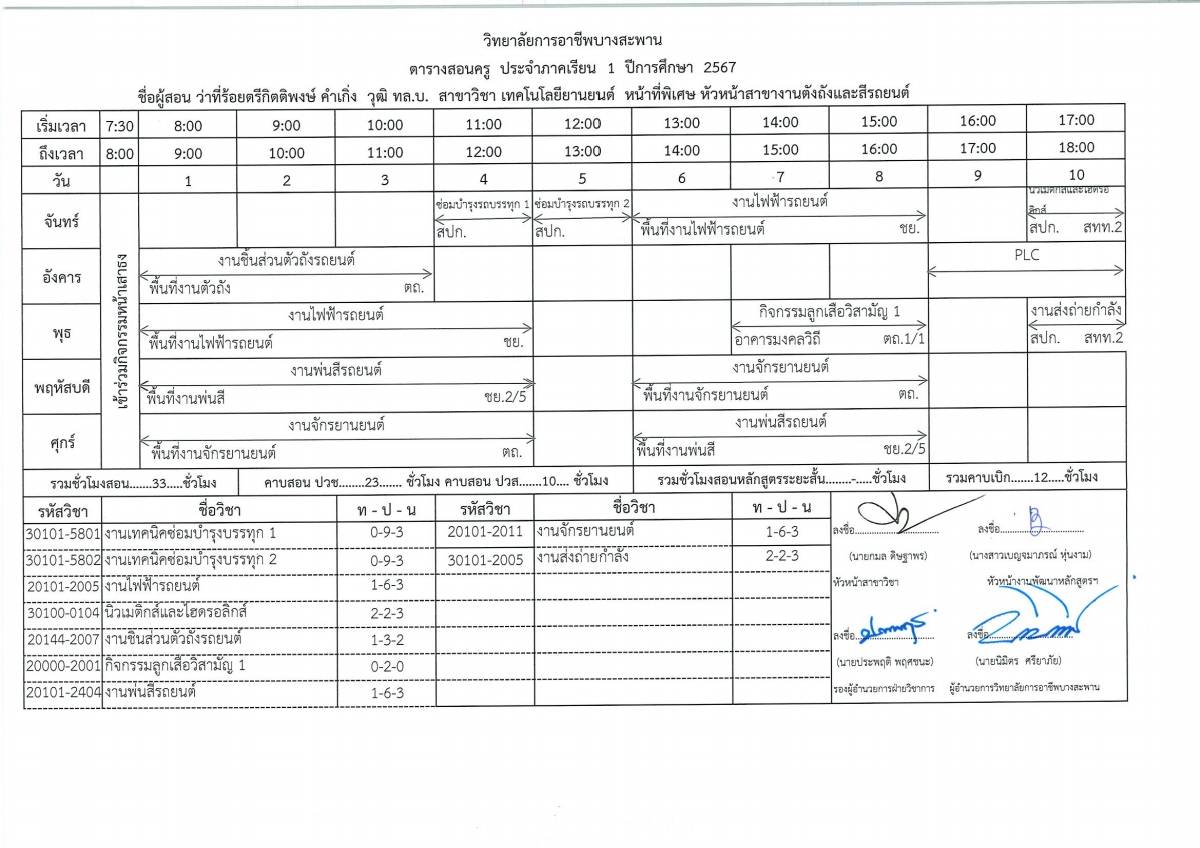 วิทยาลัยการอาชีพบางสะพาน
ตารางสอนครู ประจำภาคเรียน 1 ปีการศึกษา 2567
ชื่อผู้สอน ว่าที่ร้อยตรีกิตติพงษ์ คำเกิ่ง วุฒิ ทล.บ. สาขาวิชา เทคโนโลยียานยนต์ หน้าที่พิเศษ หัวหน้าสาขางานตังถังและสีรถยนต์
เริ่มเวลา 7:30 8:00 9:00 10:00 11:00 12:00 13:00 14:00 15:00 16:00 17:00
ถึงเวลา 8:00 9:00 10:00 11:00 12:00 13:00 14:00 15:00 16:00 17:00 18:00
วัน 1 2 3 4 5 6 7 8 9 10
เข้าร่วมกิจกรรมหน้าเสาธง
จันทร์ ซ่อมบำรุงรถบรรทุก 1 ซ่อมบำรุงรถบรรทุก 2 งานไฟฟ้ารถยนต์ นิวเมติกส์และไฮดรอลิกส์
สปก. สปก. พื้นที่งานไฟฟ้ารถยนต์ ชย. สปก. สทท.2
อังคาร งานชิ้นส่วนตัวถังรถยนต์ PLC
พื้นที่งานตัวถัง ตถ.
พุธ งานไฟฟ้ารถยนต์ กิจกรรมลูกเสือวิสามัญ 1 งานส่งถ่ายกำลัง
พื้นที่งานไฟฟ้ารถยนต์ ชย. อาคารมงคลวิถี ตถ.1/1 สปก. สทท.2
พฤหัสบดี งานพ่นสีรถยนต์ งานจักรยานยนต์
พื้นที่งานพ่นสี ชย.2/5 พื้นที่งานจักรยานยนต์ ตถ.
ศุกร์ งานจักรยานยนต์ งานพ่นสีรถยนต์
พื้นที่งานจักรยานยนต์ ตถ. พื้นที่งานพ่นสี ชย.2/5
รวมชั่วโมงสอน.......33.....ชั่วโมง คาบสอน ปวช........23....... ชั่วโมง คาบสอน ปวส.......10.... ชั่วโมง รวมชั่วโมงสอนหลักสูตรระยะสั้น........-.....ชั่วโมง รวมคาบเบิก.......12.....ชั่วโมง
รหัสวิชา ชื่อวิชา ท - ป - น รหัสวิชา ชื่อวิชา ท - ป - น
30101-5801 งานเทคนิคซ่อมบำรุงบรรทุก 1 0-9-3 20101-2011 งานจักรยานยนต์ 1-6-3
30101-5802 งานเทคนิคซ่อมบำรุงบรรทุก 2 0-9-3 30101-2005 งานส่งถ่ายกำลัง 2-2-3
20101-2005 งานไฟฟ้ารถยนต์ 1-6-3
30100-0104 นิวเมติกส์และไฮดรอลิกส์ 2-2-3
20144-2007 งานชิ้นส่วนตัวถังรถยนต์ 1-3-2
20000-2001 กิจกรรมลูกเสือวิสามัญ 1 0-2-0
20101-2404 งานพ่นสีรถยนต์ 1-6-3
ลงชื่อ ลงชื่อ
(นายกมล ดิษฐาพร) (นางสาวเบญจมาภรณ์ หุ่นงาม)
หัวหน้าสาขาวิชา หัวหน้างานพัฒนาหลักสูตรฯ
ลงชื่อ ลงชื่อ
(นายประพฤติ พฤศชนะ) (นายนิมิตร ศรียาภัย)
รองผู้อำนวยการฝ่ายวิชาการ ผู้อำนวยการวิทยาลัยการอาชีพบางสะพาน